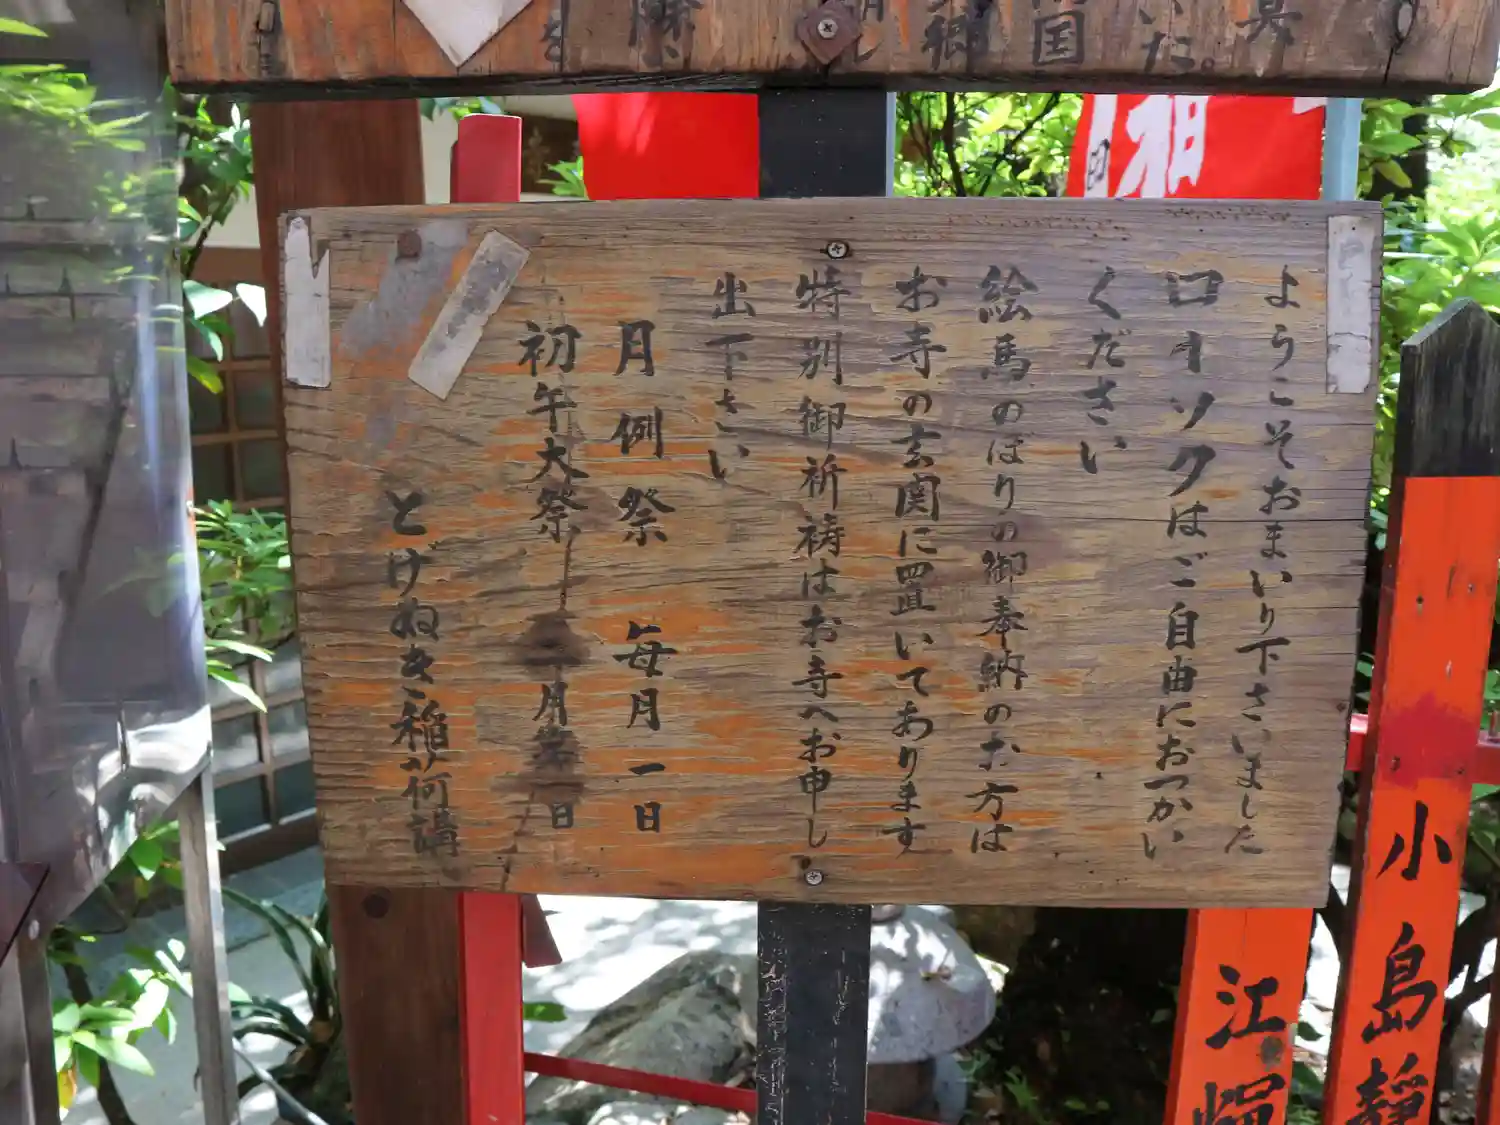 ようこそおまいり下さいました
ローソクはご自由におつかい
ください
絵馬、のぼりの御奉納のお方は
お寺の玄関に置いてあります
特別御祈祷はお寺へお申し
出下さい
月例祭 毎月一日
初午大祭 月 日
とげぬき稲荷講
小島
江